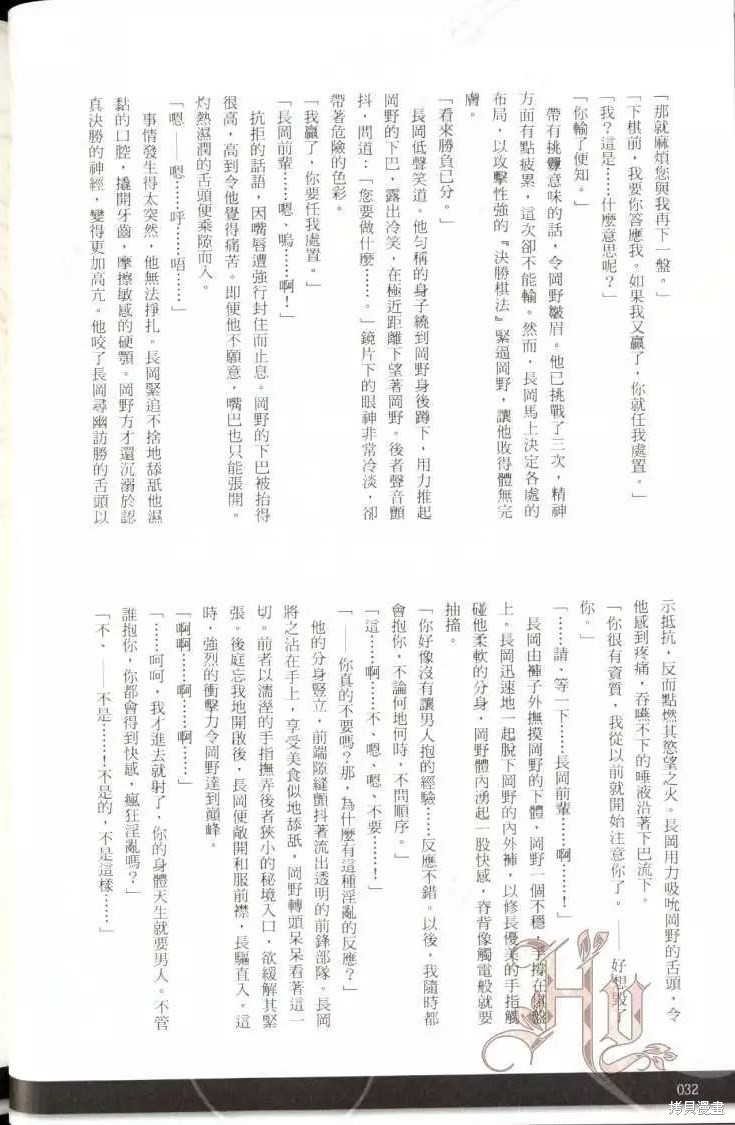 「那就麻煩您與我再下一盤。」
「下棋前，我要你答應我。如果我又贏了，你就任我處置。」
「我？這是……什麼意思呢？」
「你輸了便知。」
帶有挑釁意味的話，令岡野皺眉。他已挑戰了三次，精神
方面有點疲累，這次卻不能輸。然而，長岡馬上決定各處的
布局，以攻擊性強的『決勝棋法』緊逼岡野，讓他敗得體無完
膚。
「看來勝負已分。」
長岡低聲笑道。他勻稱的身子繞到岡野身後蹲下，用力推起
岡野的下巴，露出冷笑，在極近距離下望著岡野。後者聲音顫
抖，問道：「您要做什麼……。」鏡片下的眼神非常冷淡，卻
帶著危險的色彩。
「我贏了，你要任我處置。」
「長岡前輩……嗯、嗚……啊！」
抗拒的話語，因嘴唇遭強行封住而止息。岡野的下巴被抬得
很高，高到令他覺得痛苦。即便他不願意，嘴巴也只能張開。
灼熱濕潤的舌頭便乘隙而入。
「嗯──嗯……呼……唔……」
事情發生得太突然，他無法掙扎。長岡緊追不捨地舔舐他濕
黏的口腔，撬開牙齒，摩擦敏感的硬顎。岡野方才還沉溺於認
真決勝的神經，變得更加高亢。他咬了長岡尋幽訪勝的舌頭以
示抵抗，反而點燃其慾望之火。長岡用力吸吮岡野的舌頭，令
他感到疼痛，吞嚥不下的唾液沿著下巴流下。
「你很有資質，我從以前就開始注意你了。──好想毀了
你。」
「……請、等一下……長岡前輩……啊……！」
長岡由褲子外撫摸岡野的下體，岡野一個不穩，手撐在棋盤
上。長岡迅速地一起脫下岡野的內外褲，以修長優美的手指觸
碰他柔軟的分身，岡野體內湧起一股快感，脊背像觸電般就要
抽搐。
「你好像沒有讓男人抱的經驗……反應不錯。以後，我隨時都
會抱你，不論何地何時，不問順序。」
「這……啊……不、嗯、嗯、不要……！」
「──你真的不要嗎？那，為什麼有這種淫亂的反應？」
他的分身豎立，前端隙縫顫抖著流出透明的前鋒部隊。長岡
將之沾在手上，享受美食似地舔舐，岡野轉頭呆呆看著這一
切。前者以濡溼的手指撫弄後者狹小的秘境入口，欲緩解其緊
張。後庭忘我地開啟後，長岡便敞開和服前襟，長驅直入。這
時，強烈的衝擊力令岡野達到巔峰。
「啊啊……啊……啊……」
「……呵呵，我才進去就射了，你的身體天生就要男人。不管
誰抱你，你都會得到快感，瘋狂淫亂嗎？」
「不、──不是……！不是的，不是這樣……」
Hy
032
拷貝漫畫